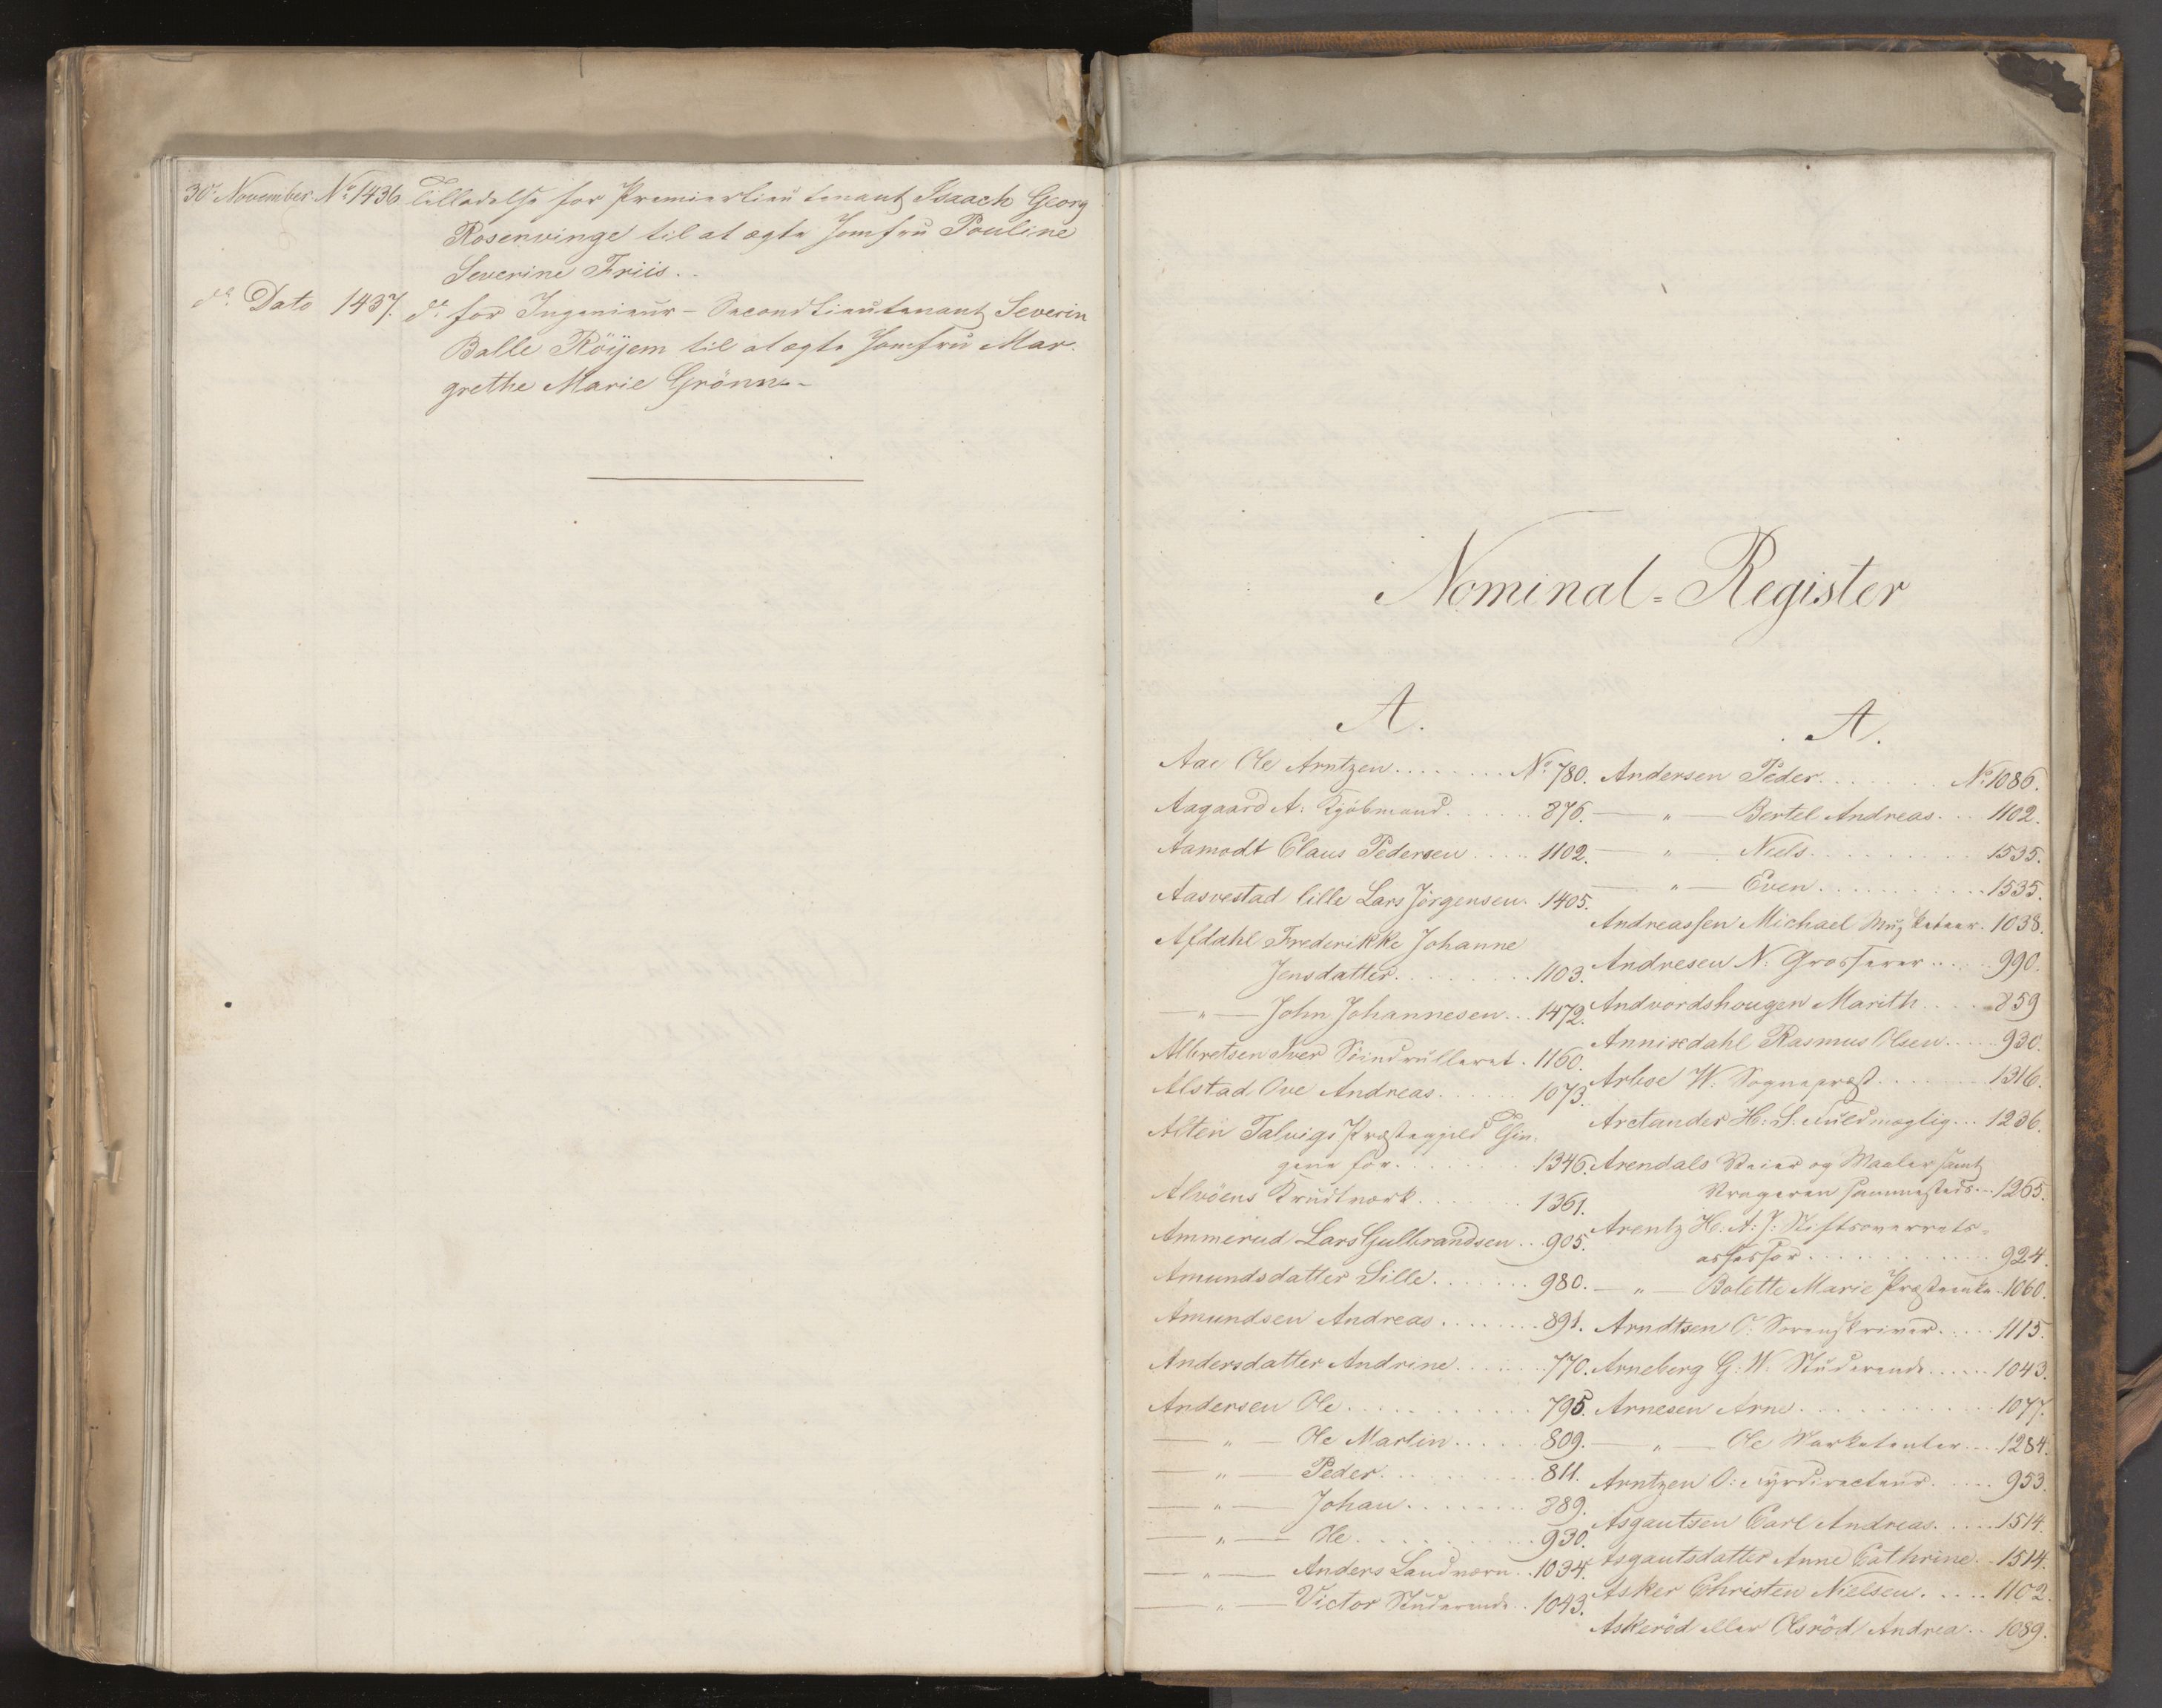 30te November. No 1436 Tilladelse for Premierlieutenant Isaach Georg
Rosenvinge til at ægte Jomfru Pouline
Severine Friis..
do Dato 1437. do for Ingenieur-Secondlieutenant Severin
Balle Röijem til at ægte Jomfru Mar-
grethe Marie Grönn.-
Nominal-Register
A.
Aae Ole Arntzen ........ No 780.
Aagaard A: Kjöbmand ...... 876.
Aamodt Claus Pedersen ..... 1102.
Aasvestad lille Lars Jörgensen. 1405.
Afdahl Frederikke Johanne
Jensdatter ........ 1103.
—"— John Johannesen ... 1472.
Albretsen Iver Söindrulleret. 1160.
Alstad Ove Andreas ...... 1073.
Alten Talvigs Præstegjeld
for ........ 1346.
Alvöens Krudtværk ...... 1361.
Ammerud Lars Gulbrandsen .. 905.
Amundsdatter Sille ....... 980.
Amundsen Andreas ........ 891.
Andersdatter Andrine ...... 770.
Andersen Ole ........... 795.
—"— Ole Martin ...... 809.
—"— Peder ......... 811.
—"— Johan ........ 889.
—"— Ole .......... 930.
—"— Anders Landværn .. 1034.
—"— Victor Studerende .. 1043.
A.
Andersen Peder ....... No 1086.
—"— Bertel Andreas ... 1102.
—"— Niels .......... 1535.
—"— Even .......... 1535.
Andreassen Michael Musketeer. 1038.
Andresen N. Grosserer ..... 990.
Andvordshougen Marith .... 859
Annisdahl Rasmus Olsen .... 930.
Arboe W. Sognepræst ....... 1316.
Arctander H: S. Fuldmægtig ... 1236.
Arendals Veier og Maaler samt
Vrageren sammesteds ... 1265.
Arentz H: A: J: Stiftsoverrets-
assessor .......... 924.
—"— Bolette Marie Præsteenke. 1060.
Arndtsen O: Sorenskriver ..... 1115.
Arneberg G: W. Studerende ...... 1043.
Arnesen Arne ........... 1077.
—"— Ole Marketenter ... 1284.
Arntzen O: Fyrdirecteur ..... 953.
Asgautsen Carl Andreas ..... 1514.
Asgautsdatter Anne Cathrine. 1514.
Asker Christen Nielsen ..... 1102.
Askeröd eller Olsröd Andrea .. 1089.